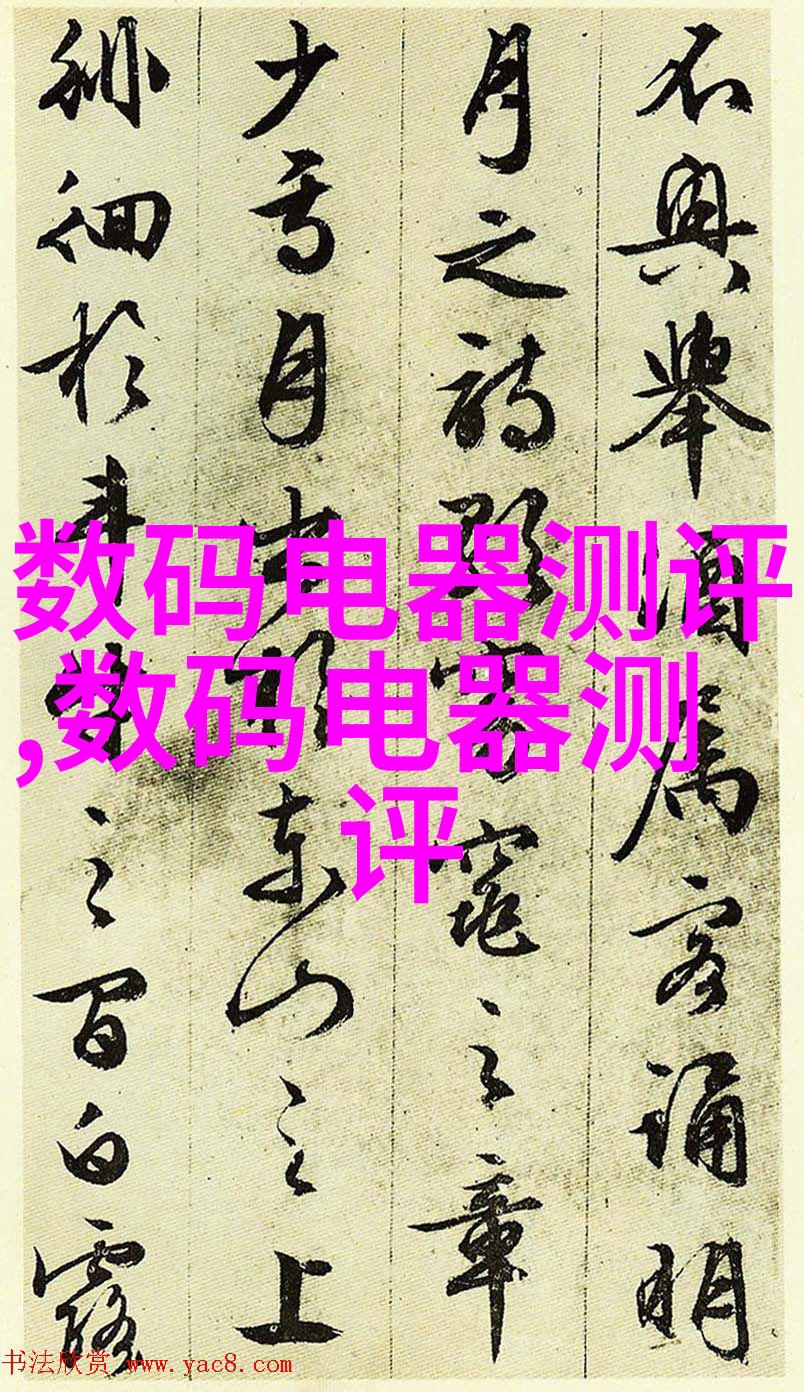 不興舉酒属客诵明
月之詩歌窈窕之章
少焉月出於東山之上
徘徊於斗牛之间白露
数码电器测评
,数码电器测
评
书法欣赏 www.yac8.com